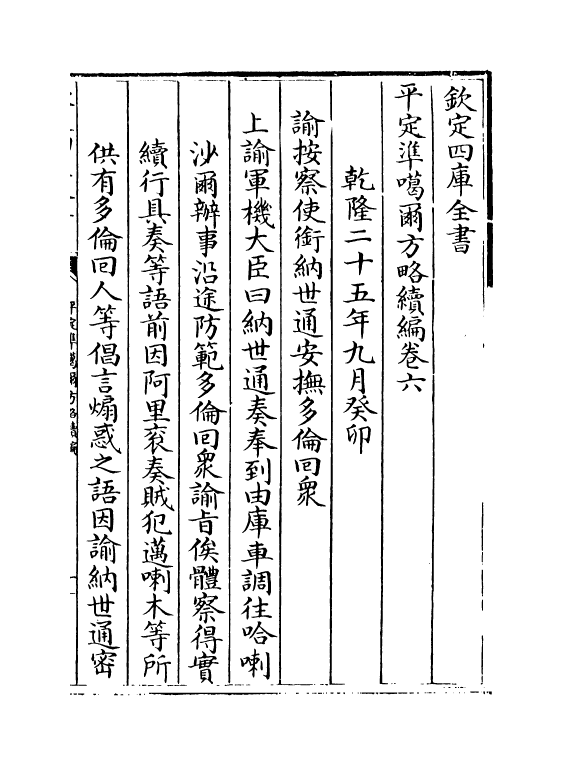 欽定四庫全書
平定準噶爾方略續編卷六
乾隆二十五年九月癸卯
諭按察使銜納世通安撫多倫回衆
上諭軍機大臣曰納世通奏奉到由庫車調往哈喇
沙爾辦事沿途防範多倫回衆諭旨俟體察得實
續行具奏等語前因阿里衮奏賊犯邁喇木等所
供有多倫回人等倡言煽惑之語因諭納世通密
平定準噶爾方略續編